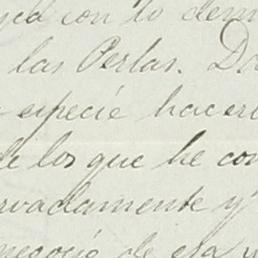 con lo dem
las Perlas. Do
especie hacer
de los que he con
rvadamente y
negocio de esa